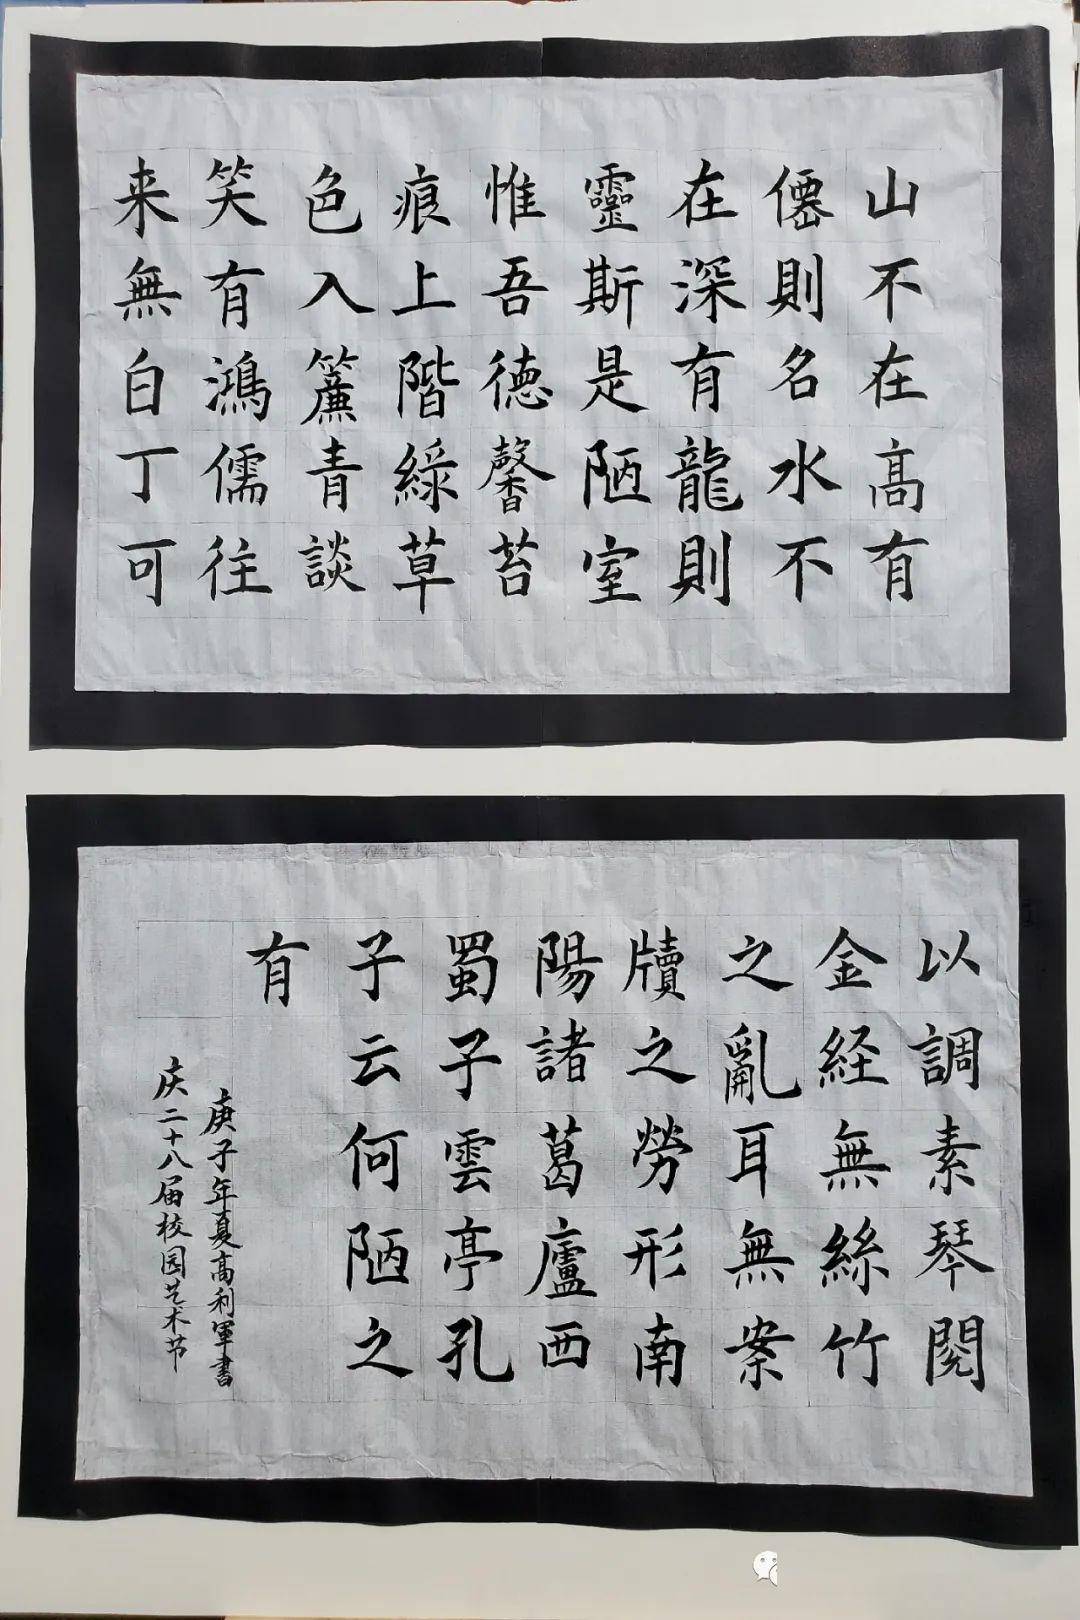 山不在高有
僊則名水不
在深有龍則
靈斯是陋室
惟吾德馨苔
痕上階綠草
色入簾青談
笑有鴻儒往
来無白丁可
以調素琴閱
金経無絲竹
之亂耳無案
牘之勞形南
陽諸葛廬西
蜀子雲亭孔
子云何陋之
有
庚子年夏高利軍書
庆二十八届校园艺术节